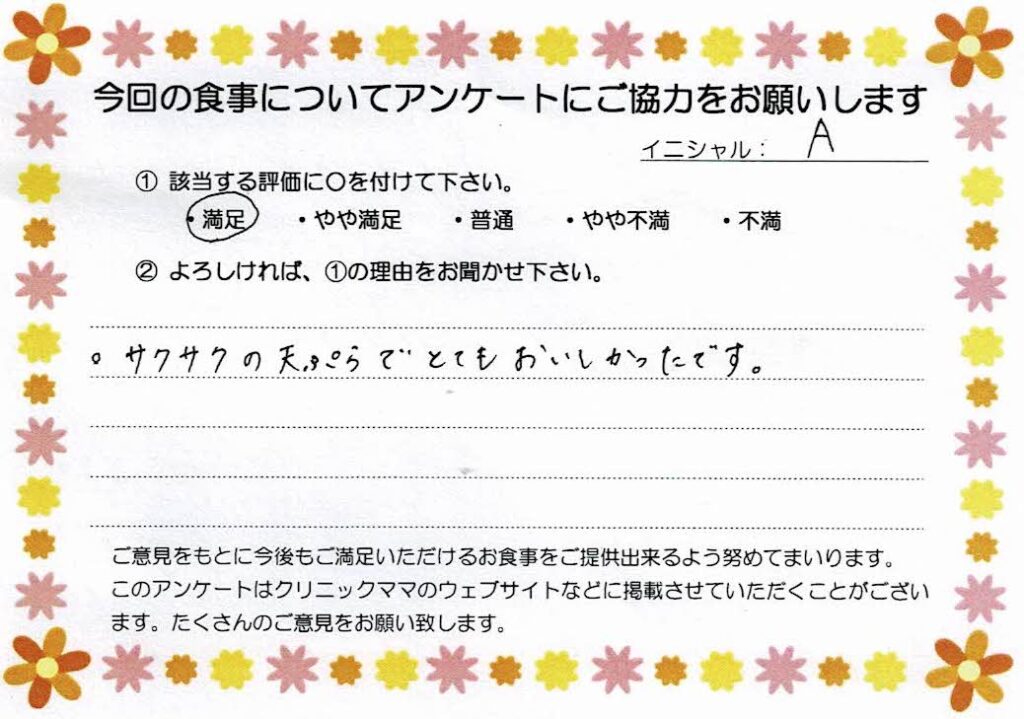 今回の食事についてアンケートにご協力をお願いします
イニシャル： A
① 該当する評価に〇を付けて下さい。
・満足 ・やや満足 ・普通 ・やや不満 ・不満
② よろしければ、①の理由をお聞かせ下さい。
。サクサクの天ぷらでとてもおいしかったです。
ご意見をもとに今後もご満足いただけるお食事をご提供出来るよう努めてまいります。
このアンケートはクリニックママのウェブサイトなどに掲載させていただくことがござい
ます。たくさんのご意見をお願い致します。